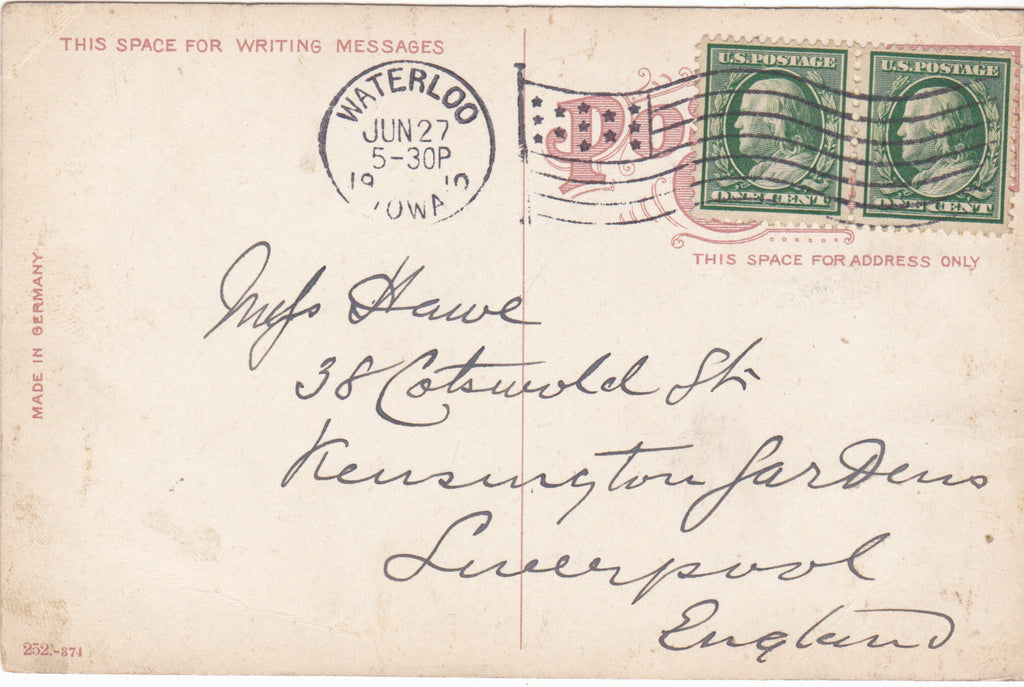 THIS SPACE FOR WRITING MESSAGES
WATERLOO
JUN 27
5-30P
19 10
IOWA
U.S. POSTAGE
ONE CENT
U.S. POSTAGE
ONE CENT
THIS SPACE FOR ADDRESS ONLY
MADE IN GERMANY
Miss Hawe
38 Cotswold St.
Kensington Gardens
Liverpool
England
252.-874